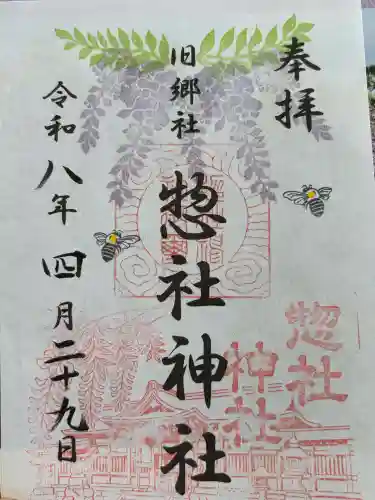 奉拝
旧郷社
惣社神社
令和八年四月二十九日
惣社
神社